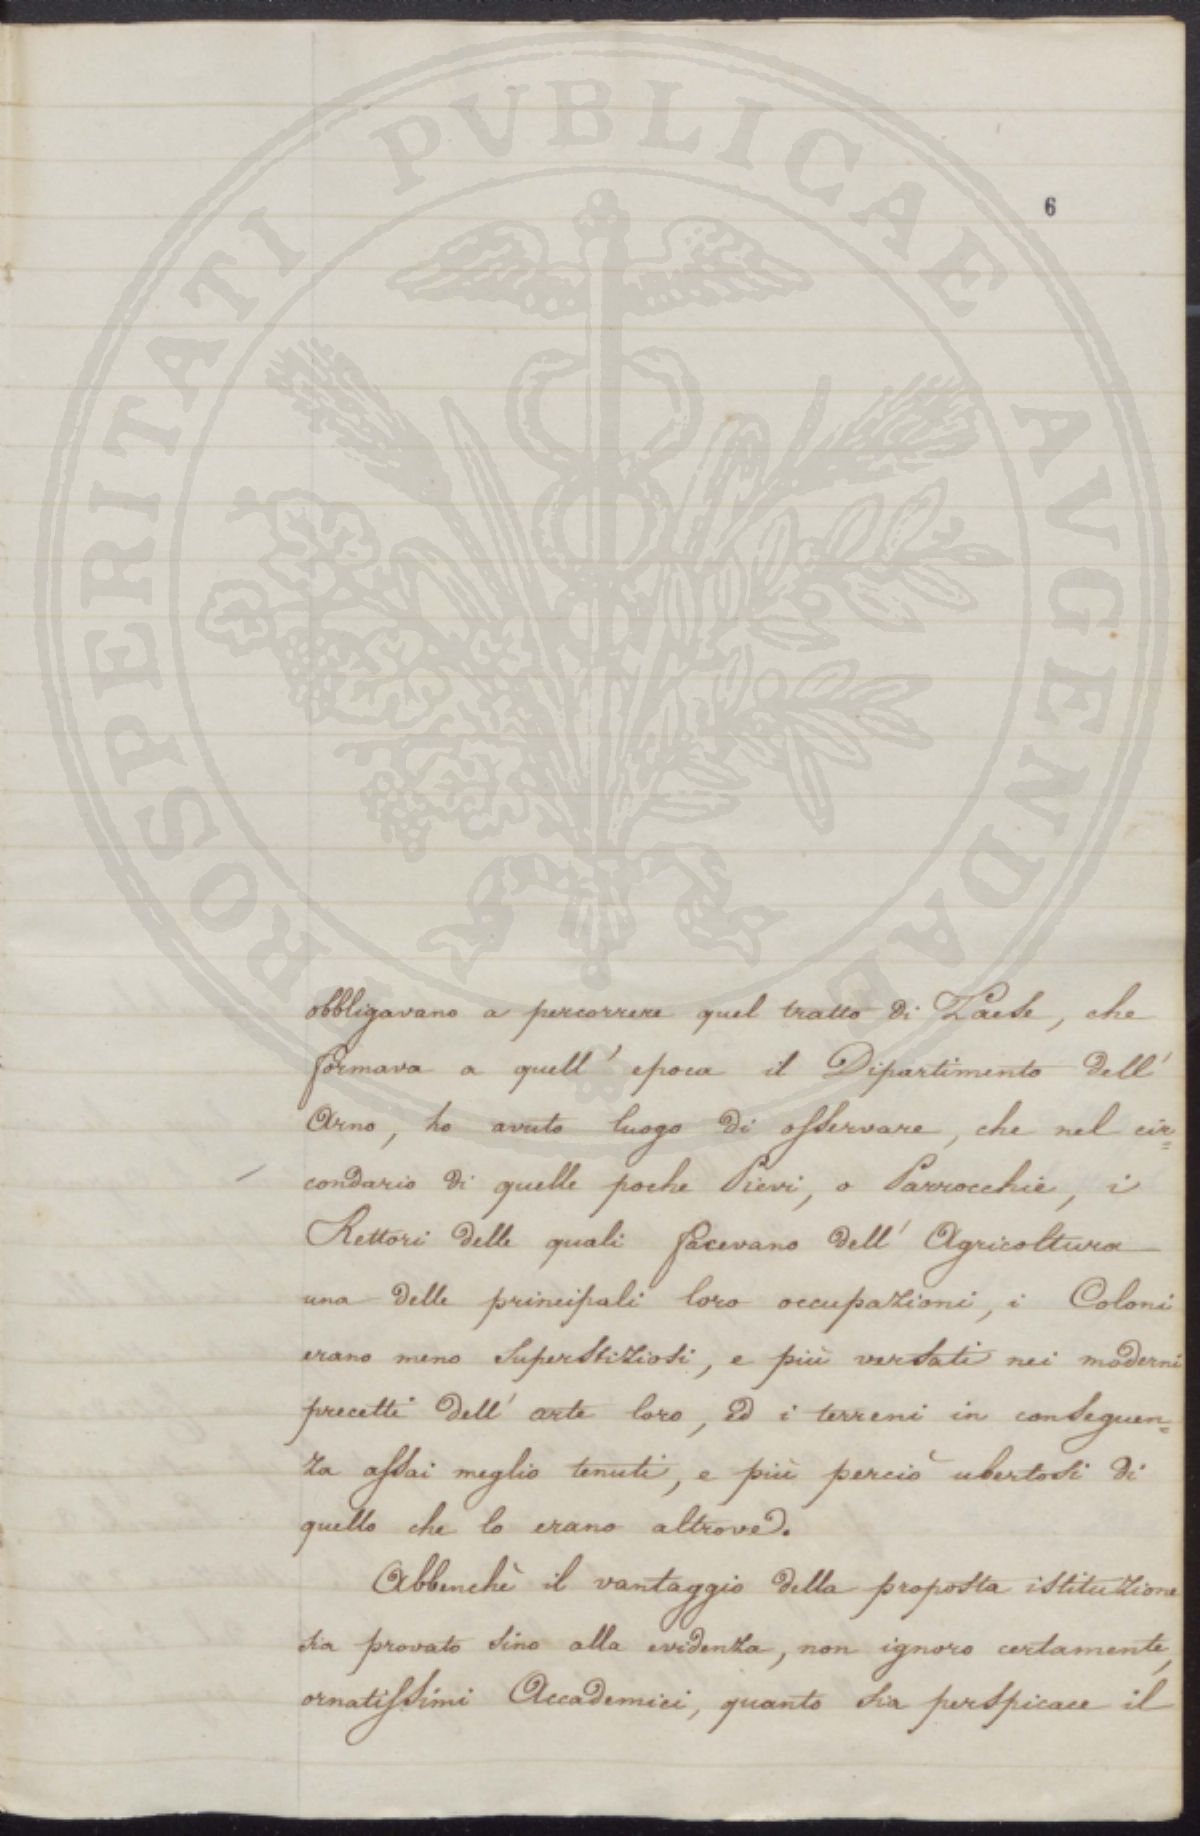 PROSPERITATI PUBLICAE AVGENDAE
6
obbligavano a percorrere quel tratto di Paese, che
formava a quell' epoca il Dipartimento dell'
Arno, ho avuto luogo di osservare, che nel cir=
condario di quelle poche Pievi, o Parrocchie, i
Rettori delle quali facevano dell' Agricoltura
una delle principali loro occupazioni, i Coloni
erano meno superstiziosi, e più versati nei moderni
precetti dell' arte loro, ed i terreni in conseguen=
za assai meglio tenuti, e più perciò ubertosi di
quello che lo erano altrove.
Abbenchè il vantaggio della proposta istituzione
sia provato sino alla evidenza, non ignoro certamente,
ornatissimi Accademici, quanto sia perspicace il